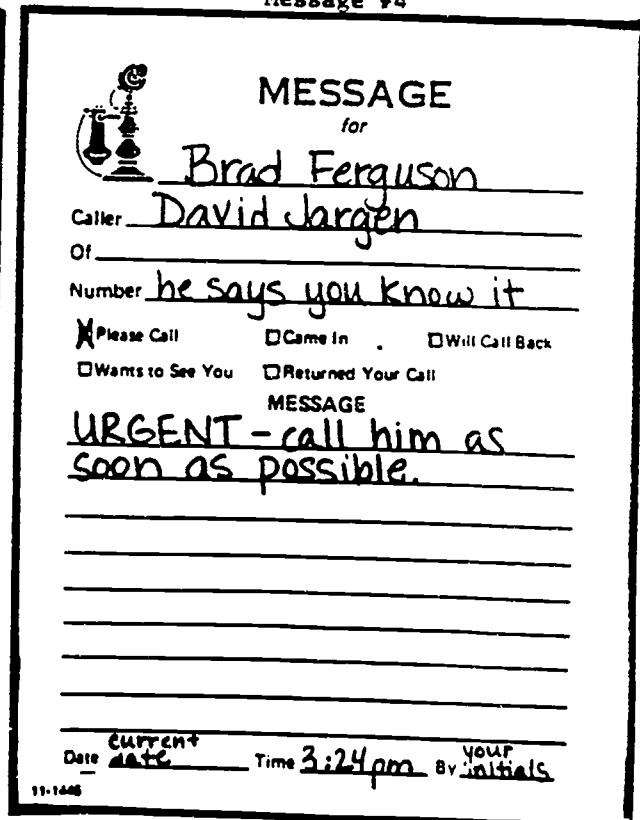 Message #4
MESSAGE
for
Brad Ferguson
Caller David Jargen
Of
Number he says you know it
Please Call Came In Will Call Back
Wants to See You Returned Your Call
MESSAGE
URGENT - call him as
soon as possible.
Date current date Time 3:24pm By your initials
11-1446